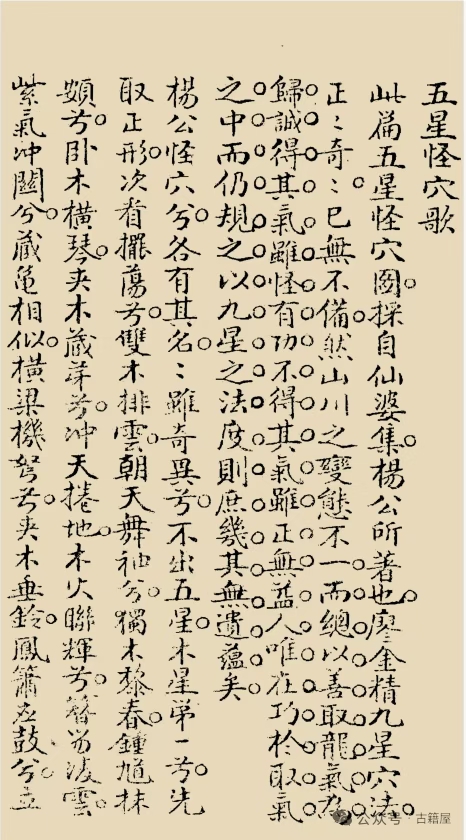 五星怪穴歌
此篇五星怪穴图採自仙婆集楊公所著也廖金精九星穴法
正〻奇〻已無不備然山川之變態不一而總以善取龍氣為
歸誠得其氣雖怪有功不得其氣雖正無益人唯在巧於取氣
之中而仍規之以九星之法度則庶幾其無遺蘊矣
楊公怪穴兮各有其名〻雖奇異兮不出五星木星第一兮先
取正形次看擺蕩兮雙木排雲朝天舞袖兮獨木黎春鍾馗抹
額兮卧木横琴夹木藏芽兮冲天捲地木火聯輝兮暮雲
紫氣冲關兮藏亀相似横梁機弩兮夹木垂鈴鳳簫鼓兮
公众号·古籍屋